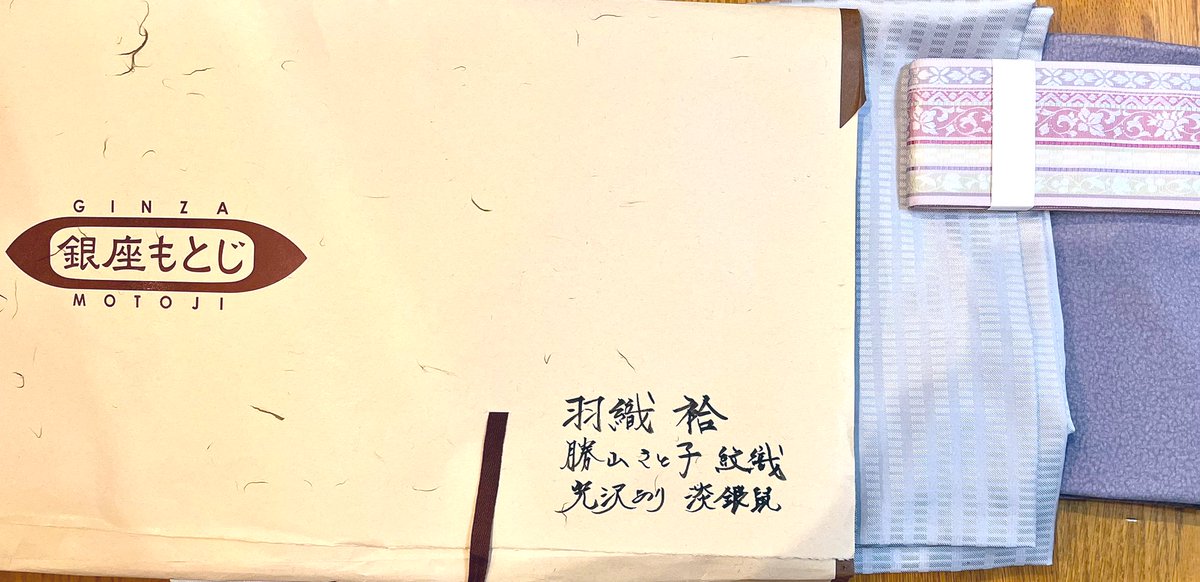 GINZA
銀座もとじ
MOTOJI
羽織 袷
勝山さと子 紋織
光沢あり 淡銀鼠